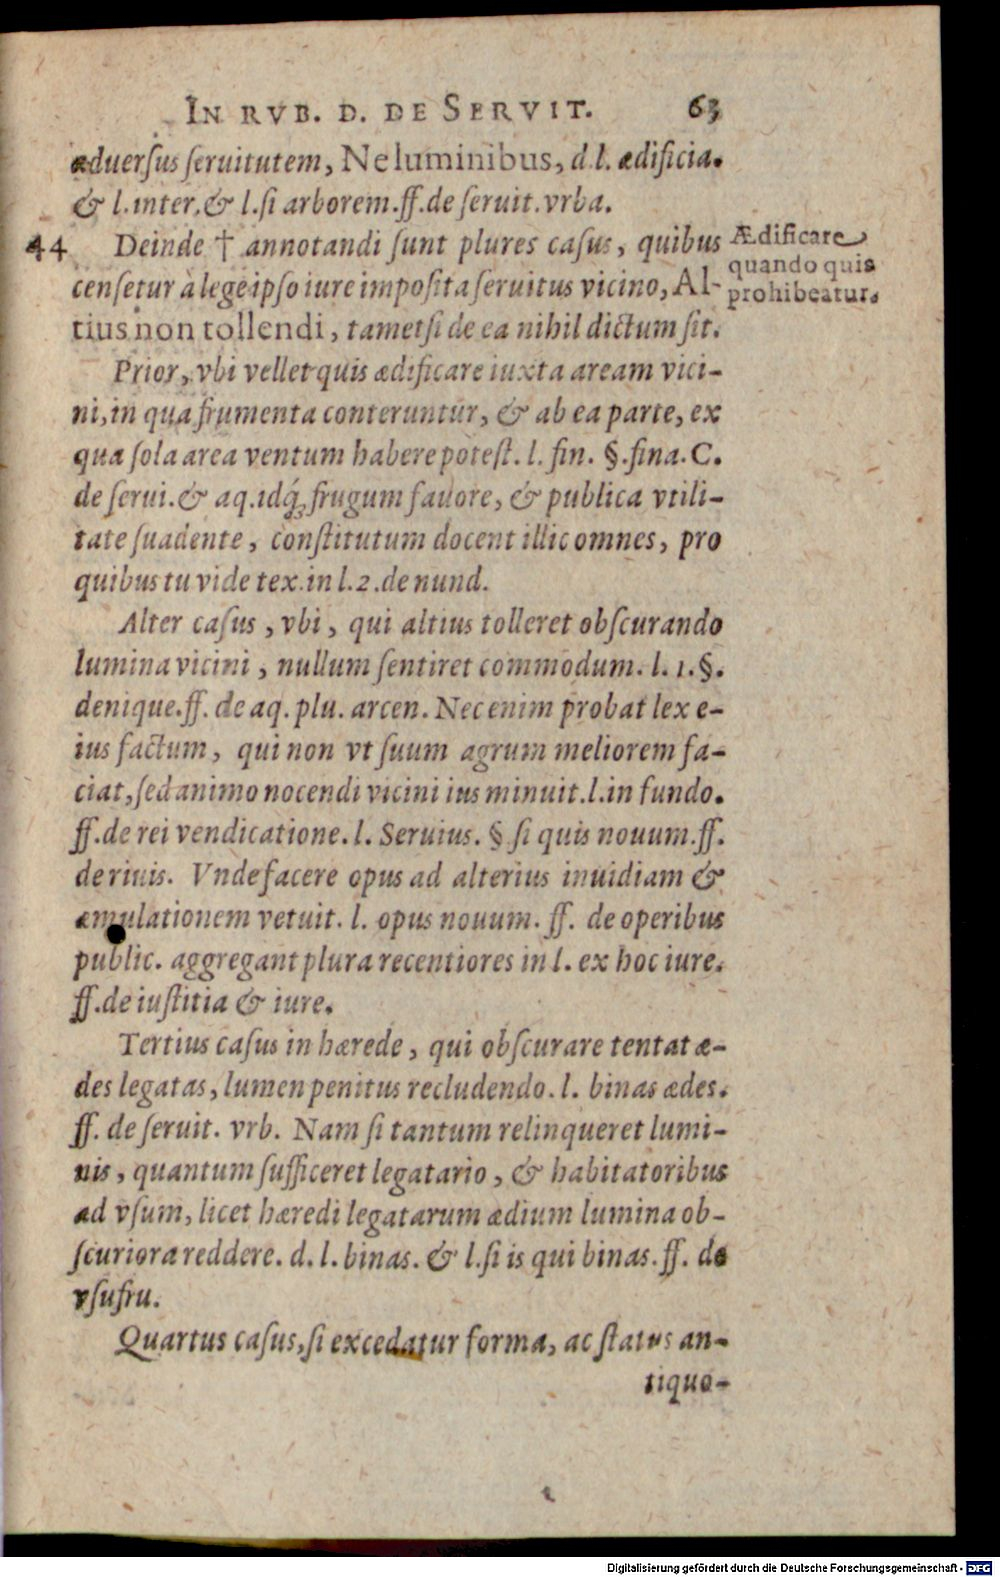 IN RVB. D. DE SERVIT. 63
aduerſus ſeruitutem, Ne luminibus, d. l. ædificia.
& l. inter, & l. ſi arborem. ff. de ſeruit. vrba.
44 Deinde † annotandi ſunt plures caſus, quibus
cenſetur à lege ipſo iure impoſita ſeruitus vicino, Al-
tius non tollendi, tametſi de ea nihil dictum ſit.
Ædificare
quando quis
prohibeatur.
Prior, vbi vellet quis ædificare iuxta aream vici-
ni, in qua frumenta conteruntur, & ab ea parte, ex
qua ſola area ventum habere poteſt. l. fin. §. fina. C.
de ſerui. & aq. idq́; frugum fauore, & publica vtili-
tate ſuadente, conſtitutum docent illic omnes, pro
quibus tu vide tex. in l. 2. de nund.
Alter caſus, vbi, qui altius tolleret obſcurando
lumina vicini, nullum ſentiret commodum. l. 1. §.
denique. ff. de aq. plu. arcen. Nec enim probat lex e-
ius factum, qui non vt ſuum agrum meliorem fa-
ciat, ſed animo nocendi vicini ius minuit. l. in fundo.
ff. de rei vendicatione. l. Seruius. § ſi quis nouum. ff.
de riuis. Vnde facere opus ad alterius inuidiam &
æmulationem vetuit. l. opus nouum. ff. de operibus
public. aggregant plura recentiores in l. ex hoc iure.
ff. de iuſtitia & iure.
Tertius caſus in hærede, qui obſcurare tentat æ-
des legatas, lumen penitus recludendo. l. binas ædes.
ff. de ſeruit. vrb. Nam ſi tantum relinqueret lumi-
nis, quantum ſufficeret legatario, & habitatoribus
ad vſum, licet hæredi legatarum ædium lumina ob-
ſcuriora reddere. d. l. binas. & l. ſi is qui binas. ff. de
vſufru.
Quartus caſus, ſi excedatur forma, ac ſtatus an-
tiquo-
Digitalisierung gefördert durch die Deutsche Forschungsgemeinschaft - DFG